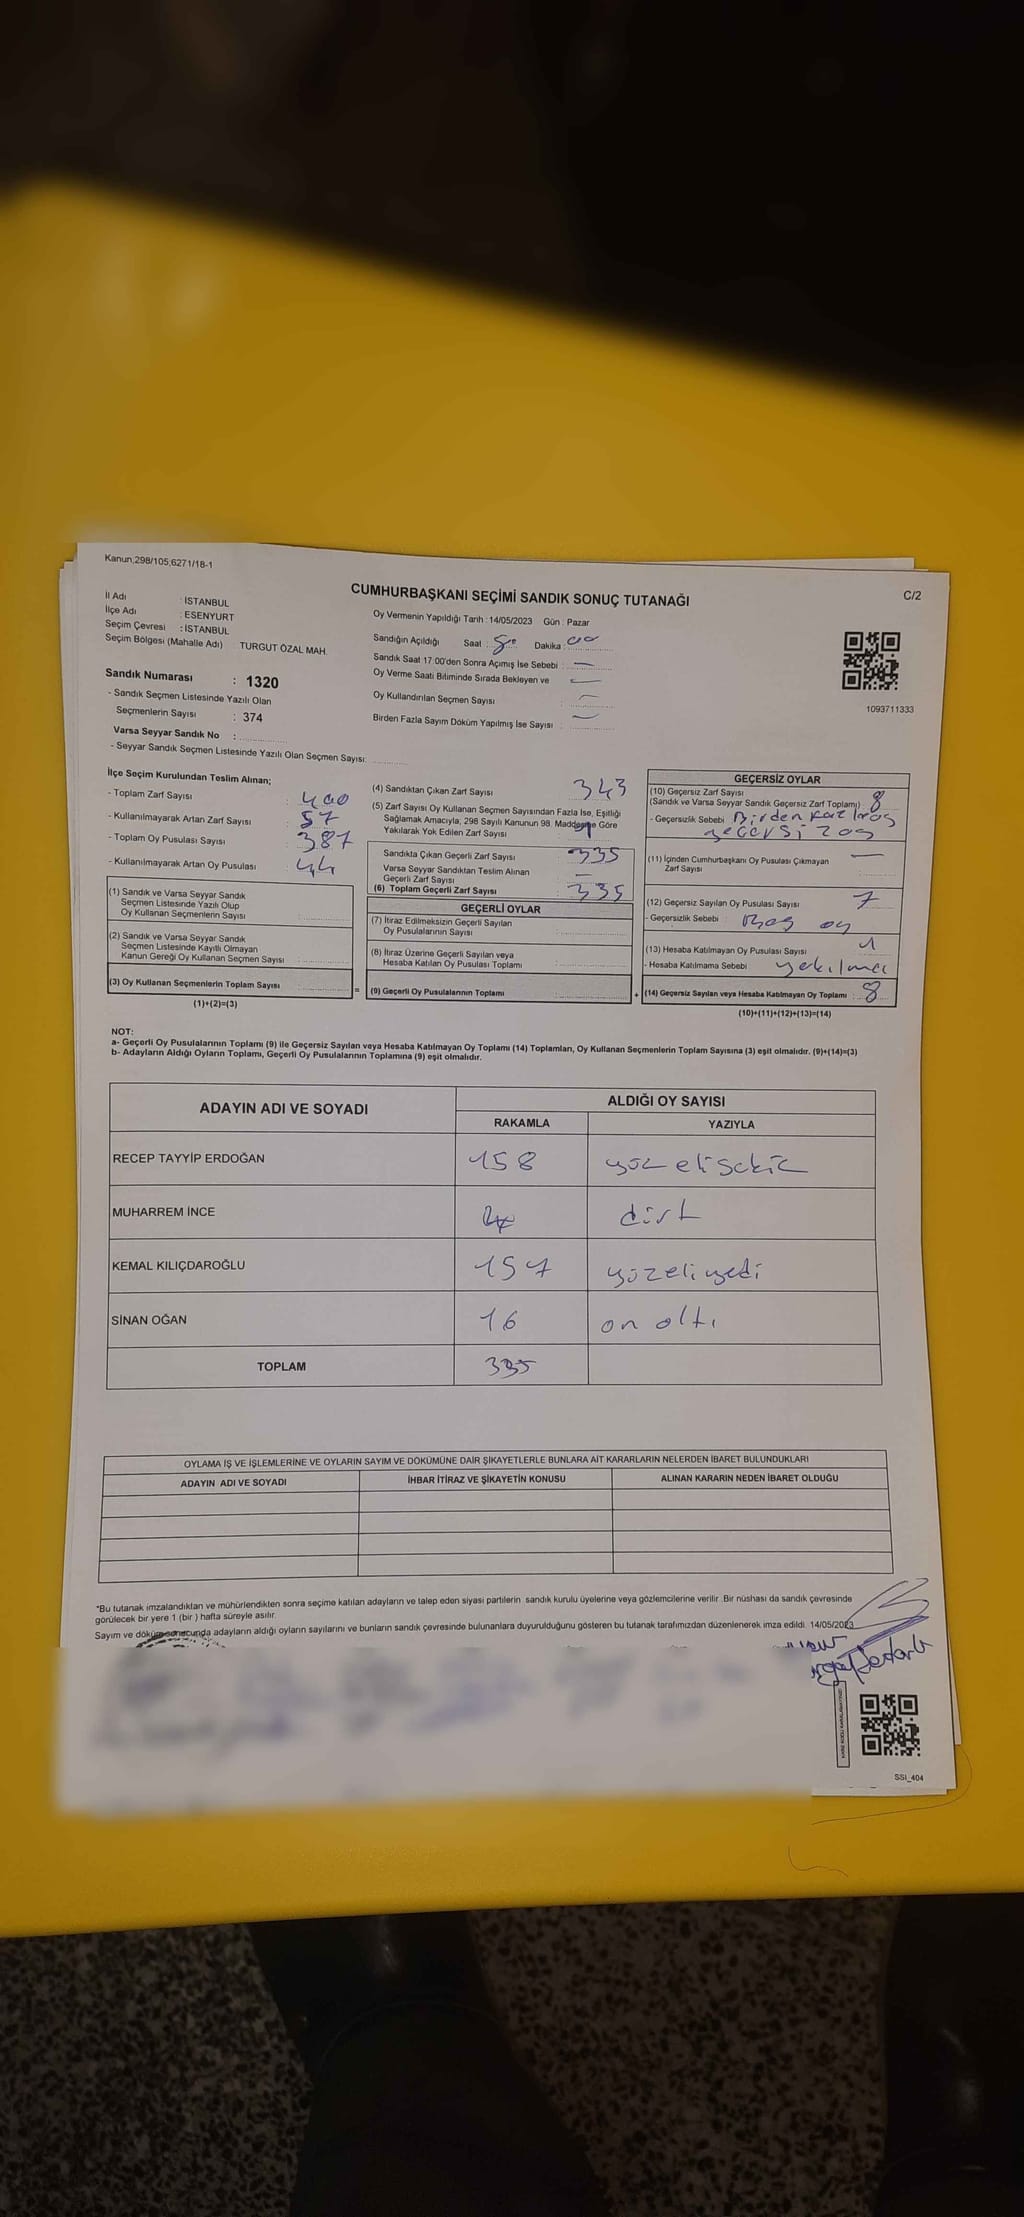 Kanun;298/105;6271/18-1
C/2
CUMHURBAŞKANI SEÇİMİ SANDIK SONUÇ TUTANAĞI
İl Adı : İSTANBUL
İlçe Adı : ESENYURT
Seçim Çevresi : İSTANBUL
Seçim Bölgesi (Mahalle Adı) TURGUT ÖZAL MAH.
Sandık Numarası : 1320
- Sandık Seçmen Listesinde Yazılı Olan
Seçmenlerin Sayısı : 374
Varsa Seyyar Sandık No :
- Seyyar Sandık Seçmen Listesinde Yazılı Olan Seçmen Sayısı:
Oy Vermenin Yapıldığı Tarih : 14/05/2023 Gün : Pazar
Sandığın Açıldığı Saat : Dakika :
Sandık Saat 17:00'den Sonra Açımış İse Sebebi : —
Oy Verme Saati Bitiminde Sırada Bekleyen ve —
Oy Kullandırılan Seçmen Sayısı : —
Birden Fazla Sayım Döküm Yapılmış İse Sayısı : —
1093711333
İlçe Seçim Kurulundan Teslim Alınan;
- Toplam Zarf Sayısı : 400
- Kullanılmayarak Artan Zarf Sayısı : 57
- Toplam Oy Pusulası Sayısı : 387
- Kullanılmayarak Artan Oy Pusulası : 44
(1) Sandık ve Varsa Seyyar Sandık
Seçmen Listesinde Yazılı Olup
Oy Kullanan Seçmenlerin Sayısı :
(2) Sandık ve Varsa Seyyar Sandık
Seçmen Listesinde Kayıtlı Olmayan
Kanun Gereği Oy Kullanan Seçmen Sayısı :
(3) Oy Kullanan Seçmenlerin Toplam Sayısı :
(1)+(2)=(3)
(4) Sandıktan Çıkan Zarf Sayısı : 343
(5) Zarf Sayısı Oy Kullanan Seçmen Sayısından Fazla İse, Eşitliği
Sağlamak Amacıyla, 298 Sayılı Kanunun 98. Maddesine Göre
Yakılarak Yok Edilen Zarf Sayısı
Sandıkta Çıkan Geçerli Zarf Sayısı : 335
Varsa Seyyar Sandıktan Teslim Alınan —
Geçerli Zarf Sayısı
(6) Toplam Geçerli Zarf Sayısı : 335
GEÇERLİ OYLAR
(7) İtiraz Edilmeksizin Geçerli Sayılan
Oy Pusulalarının Sayısı :
(8) İtiraz Üzerine Geçerli Sayılan veya
Hesaba Katılan Oy Pusulası Toplamı :
= (9) Geçerli Oy Pusulalarının Toplamı :
GEÇERSİZ OYLAR
(10) Geçersiz Zarf Sayısı
(Sandık ve Varsa Seyyar Sandık Geçersiz Zarf Toplamı) : 8
- Geçersizlik Sebebi : Birden
(11) İçinden Cumhurbaşkanı Oy Pusulası Çıkmayan —
Zarf Sayısı
(12) Geçersiz Sayılan Oy Pusulası Sayısı : 7
- Geçersizlik Sebebi : Boş oy
(13) Hesaba Katılmayan Oy Pusulası Sayısı : 1
- Hesaba Katılmama Sebebi : yakılma
+ (14) Geçersiz Sayılan veya Hesaba Katılmayan Oy Toplamı : 8
(10)+(11)+(12)+(13)=(14)
NOT:
a- Geçerli Oy Pusulalarının Toplamı (9) ile Geçersiz Sayılan veya Hesaba Katılmayan Oy Toplamı (14) Toplamları, Oy Kullanan Seçmenlerin Toplam Sayısına (3) eşit olmalıdır. (9)+(14)=(3)
b- Adayların Aldığı Oyların Toplamı, Geçerli Oy Pusulalarının Toplamına (9) eşit olmalıdır.
ADAYIN ADI VE SOYADI ALDIĞI OY SAYISI
RAKAMLA YAZIYLA
RECEP TAYYİP ERDOĞAN 158 yüz elisekiz
MUHARREM İNCE 4 dört
KEMAL KILIÇDAROĞLU 157 yüzeliyedi
SİNAN OĞAN 16 on altı
TOPLAM 335
OYLAMA İŞ VE İŞLEMLERİNE VE OYLARIN SAYIM VE DÖKÜMÜNE DAİR ŞİKAYETLERLE BUNLARA AİT KARARLARIN NELERDEN İBARET BULUNDUKLARI
ADAYIN ADI VE SOYADI İHBAR İTİRAZ VE ŞİKAYETİN KONUSU ALINAN KARARIN NEDEN İBARET OLDUĞU
*Bu tutanak imzalandıktan ve mühürlendikten sonra seçime katılan adayların ve talep eden siyasi partilerin sandık kurulu üyelerine veya gözlemcilerine verilir. Bir nüshası da sandık çevresinde
görülecek bir yere 1 (bir ) hafta süreyle asılır.
Sayım ve döküm sonucunda adayların aldığı oyların sayılarını ve bunların sandık çevresinde bulunanlara duyurulduğunu gösteren bu tutanak tarafımızdan düzenlenerek imza edildi. 14/05/2023
SSI_404